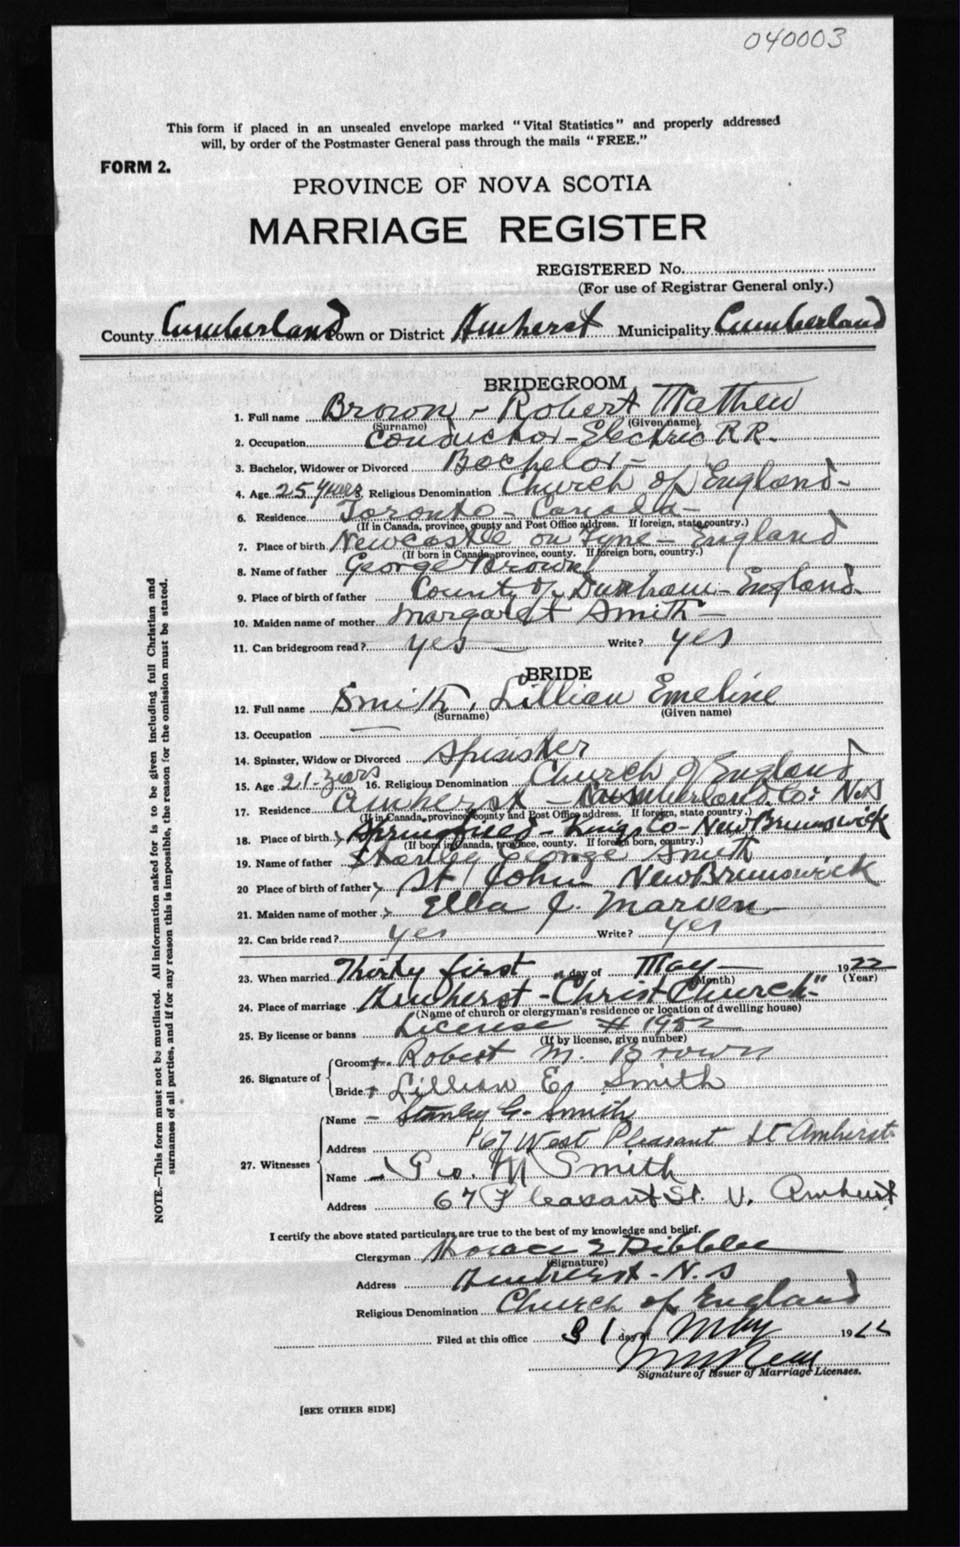 040003
This form if placed in an unsealed envelope marked "Vital Statistics" and properly addressed
will, by order of the Postmaster General pass through the mails "FREE."
FORM 2.
PROVINCE OF NOVA SCOTIA
MARRIAGE REGISTER
REGISTERED No.
(For use of Registrar General only.)
County Cumberland Town or District Amherst Municipality Cumberland
BRIDEGROOM
1. Full name Brown - Robert Mathew
(Surname) (Given name)
2. Occupation Conductor - Electric R.R.
3. Bachelor, Widower or Divorced Bachelor -
4. Age 25 years Religious Denomination Church of England -
6. Residence Toronto - Canada -
(If in Canada, province, county and Post Office address. If foreign, state country.)
7. Place of birth Newcastle on Tyne - England
(If born in Canada, province, county. If foreign born, country.)
8. Name of father George Brown
9. Place of birth of father County of Durham - England.
10. Maiden name of mother Margaret Smith -
11. Can bridegroom read? yes - Write? yes
BRIDE
12. Full name Smith, Lillian Emeline
(Surname) (Given name)
13. Occupation —
14. Spinster, Widow or Divorced Spinster
15. Age 21 years 16. Religious Denomination Church of England
17. Residence Amherst - Cumberland Co. N.S
(If in Canada, province, county and Post Office address. If foreign, state country.)
18. Place of birth Springfield - Kings Co - New Brunswick
(If born in Canada, province, county. If foreign born, country.)
19. Name of father George Smith
20 Place of birth of father St John New Brunswick
21. Maiden name of mother Ella J. Marven
22. Can bride read? yes Write? yes
23. When married Thirty first day of May - 1922
(Month) (Year)
24. Place of marriage Amherst - "Christ Church"
(Name of church or clergyman's residence or location of dwelling house)
25. By license or banns License # 1952
(If by license, give number)
26. Signature of Groom Robert M. Brown
Bride Lillian E. Smith
27. Witnesses Name - Stanley G. Smith
Address 67 West Pleasant St Amherst
Name - Geo. M Smith
Address 67 Pleasant St. W. Amherst
I certify the above stated particulars are true to the best of my knowledge and belief.
Clergyman Horace E Dibblee
(Signature)
Address Amherst - N.S
Religious Denomination Church of England
Filed at this office 31 day of May 1922
Signature of Issuer of Marriage Licenses.
[SEE OTHER SIDE]
NOTE.—This form must not be mutilated. All information asked for is to be given including full Christian and
surnames of all parties, and if for any reason this is impossible, the reason for the omission must be stated.